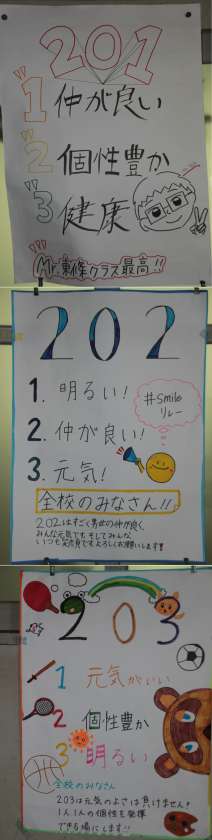 201
1 仲が良い
2 個性豊か
3 健康
Mr.東條クラス最高!!
202
1. 明るい!
2. 仲が良い!
3. 元気!
#smile
リレー
全校のみなさん!!
202はすごく男女の仲が良く、
みんな元気です。そしてみんな
いつも笑顔です。よろしくお願いします!
203
1 元気がいい
2 個性豊か
3 明るい
全校のみなさん
203は元気のよさは負けません!
1人1人の個性を発揮
できる場にします!!